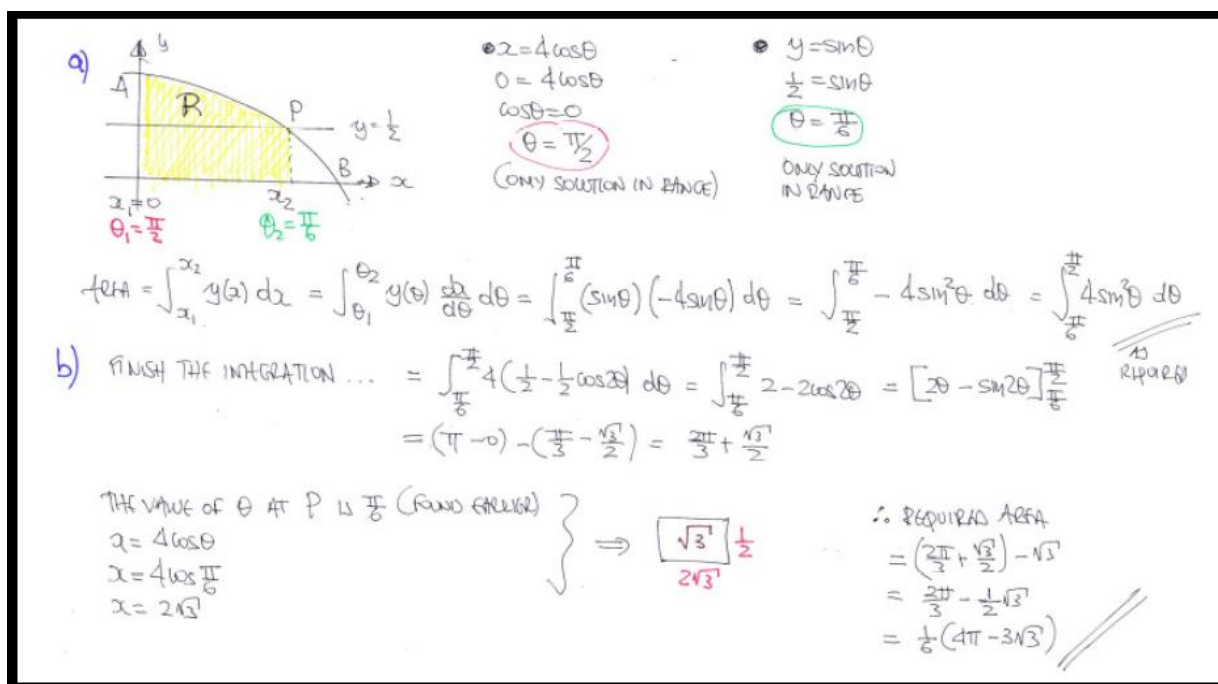 a)
y
A
R
P
y = 1/2
B
x
x₁=0
x₂
θ₁ = π/2
θ₂ = π/6
• x = 4cosθ
0 = 4cosθ
cosθ = 0
θ = π/2
(ONLY SOLUTION IN RANGE)
• y = sinθ
1/2 = sinθ
θ = π/6
ONLY SOLUTION
IN RANGE
AREA = ∫_{x₁}^{x₂} y(x) dx = ∫_{θ₁}^{θ₂} y(θ) dx/dθ dθ = ∫_{π/2}^{π/6} (sinθ)(-4sinθ) dθ = ∫_{π/2}^{π/6} -4sin²θ dθ = ∫_{π/6}^{π/2} 4sin²θ dθ
AS
REQUIRED
b) FINISH THE INTEGRATION ... = ∫_{π/6}^{π/2} 4(1/2 - 1/2 cos2θ) dθ = ∫_{π/6}^{π/2} 2 - 2cos2θ = [2θ - sin2θ]_{π/6}^{π/2}
= (π - 0) - (π/3 - √3/2) = 2π/3 + √3/2
THE VALUE OF θ AT P IS π/6 (FOUND EARLIER)
x = 4cosθ
x = 4cos π/6
x = 2√3
⇒ √3 1/2
2√3
∴ REQUIRED AREA
= (2π/3 + √3/2) - √3
= 2π/3 - 1/2 √3
= 1/6 (4π - 3√3)